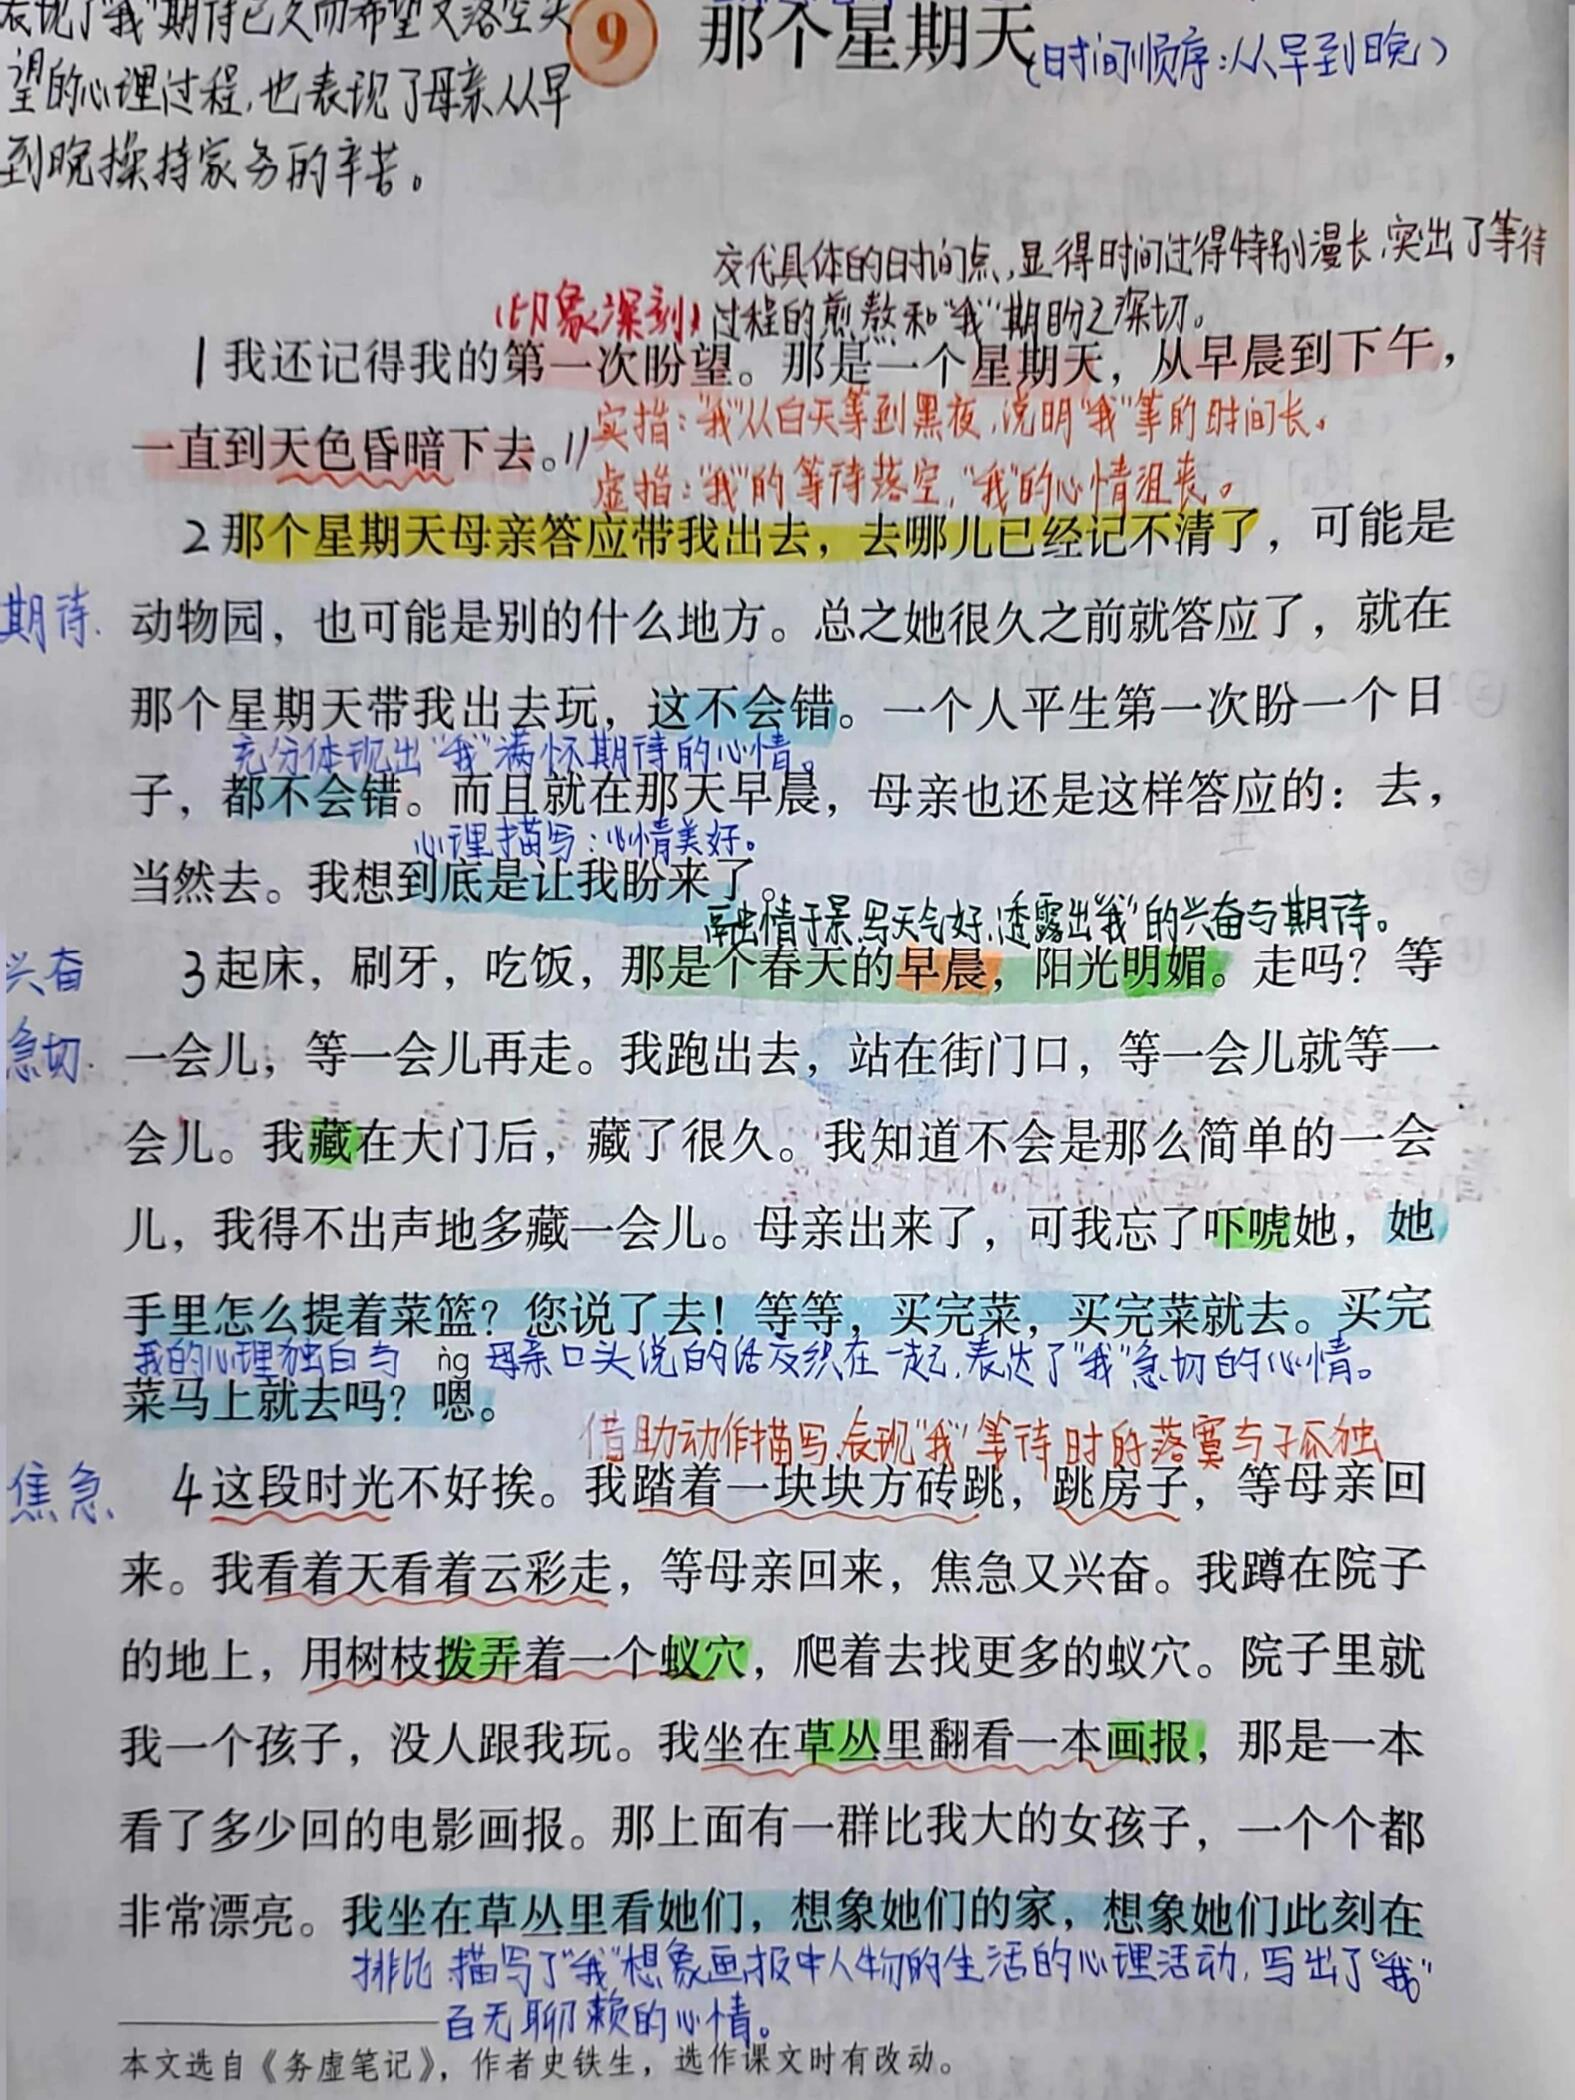 表现了"我"期待已久而希望又落空失
望的心理过程,也表现了母亲从早
到晚操持家务的辛苦。
9 那个星期天
(时间顺序:从早到晚)
交代具体的时间点,显得时间过得特别漫长,突出了等待
(印象深刻)过程的煎熬和"我"期盼之深切。
1我还记得我的第一次盼望。那是一个星期天,从早晨到下午,
一直到天色昏暗下去。//
实指:"我"从白天等到黑夜,说明"我"等的时间长。
虚指:"我"的等待落空,"我"的心情沮丧。
2那个星期天母亲答应带我出去,去哪儿已经记不清了,可能是
期待.
动物园,也可能是别的什么地方。总之她很久之前就答应了,就在
那个星期天带我出去玩,这不会错。一个人平生第一次盼一个日
充分体现出"我"满怀期待的心情。
子,都不会错。而且就在那天早晨,母亲也还是这样答应的:去,
心理描写:心情美好。
当然去。我想到底是让我盼来了。
融情于景,写天气好,透露出"我"的兴奋与期待。
兴奋
3起床,刷牙,吃饭,那是个春天的早晨,阳光明媚。走吗?等
急切.
一会儿,等一会儿再走。我跑出去,站在街门口,等一会儿就等一
会儿。我藏在大门后,藏了很久。我知道不会是那么简单的一会
儿,我得不出声地多藏一会儿。母亲出来了,可我忘了吓唬她,她
手里怎么提着菜篮?您说了去!等等,买完菜,买完菜就去。买完
我的心理独白与 ǹg 母亲口头说的话交织在一起,表达了"我"急切的心情。
菜马上就去吗?嗯。
借助动作描写,表现"我"等待时的落寞与孤独
焦急
4这段时光不好挨。我踏着一块块方砖跳,跳房子,等母亲回
来。我看着天看着云彩走,等母亲回来,焦急又兴奋。我蹲在院子
的地上,用树枝拨弄着一个蚁穴,爬着去找更多的蚁穴。院子里就
我一个孩子,没人跟我玩。我坐在草丛里翻看一本画报,那是一本
看了多少回的电影画报。那上面有一群比我大的女孩子,一个个都
非常漂亮。我坐在草丛里看她们,想象她们的家,想象她们此刻在
排比 描写了"我"想象画报中人物的生活的心理活动,写出了"我"
百无聊赖的心情。
本文选自《务虚笔记》,作者史铁生,选作课文时有改动。